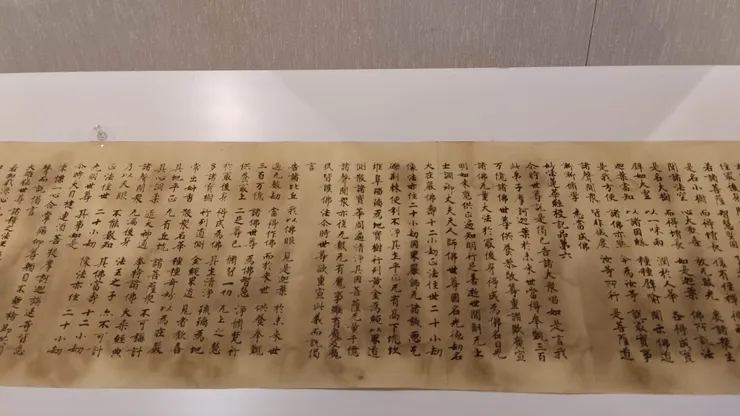 住最後身 聞法得果 是名藥草 各得增長
若諸菩薩 智慧堅固 了達三界 求最上乘
是名小樹 而得增長 復有住禪 得神通力
聞諸法空 心大歡喜 放无數光 度諸眾生
是名大樹 而得增長 如是迦葉 佛所說法
譬如大雲 以一味雨 潤於人華 各得成實
迦葉當知 以諸因緣 種種譬喻 開示佛道
是我方便 諸佛亦然 今為汝等 說最實事
諸聲聞眾 皆非滅度 汝等所行 是菩薩道
漸漸修學 悉當成佛
妙法蓮華經授記品第六
尒時世尊說是偈已告諸大眾唱如是言我
此弟子摩訶迦葉於未來世當得奉覲三百
万億諸佛世尊供養恭敬尊重讚歎廣宣
諸佛无量大法於最後身得成為佛名曰光
明如來應供正遍知明行足善逝世間解无上
士調御丈夫天人師佛世尊國名光德劫名
大莊嚴佛壽十二小劫正法住世二十小劫
像法亦住二十小劫國界嚴飾无諸穢惡瓦
礫荊棘便利不淨其土平正无有高下坑坎
堆阜琉璃為地寶樹行列黃金為繩以界道
側散諸寶華周遍清淨其國菩薩无量千億
諸聲聞眾亦復无數无有魔事雖有魔及魔
民皆護佛法尒時世尊欲重宣此義而說偈
言
告諸比丘 我以佛眼 見是迦葉 於未來世
過无數劫 當得作佛 而於來世 供養奉覲
三百万億 諸佛世尊 為佛智慧 淨修梵行
供養最上 二足尊已 修習一切 无上之慧
於最後身 得成為佛 其土清淨 琉璃為地
多諸寶樹 行列道側 金繩界道 見者歡喜
常出好香 散眾名華 種種奇妙 以為莊嚴
其地平正 无有丘坑 諸菩薩眾 不可稱計
其心調柔 逮大神通 奉持諸佛 大乘經典
諸聲聞眾 无漏後身 法王之子 亦不可計
乃以天眼 不能數知 其佛當壽 十二小劫
正法住世 二十小劫 像法亦住 二十小劫
光明世尊 其事如是
尒時大目揵連須菩提摩訶迦旃延等皆悉
悚慄一心合掌瞻仰尊顏目不暫捨即共同
聲說偈言
大雄猛世尊 諸釋之法王